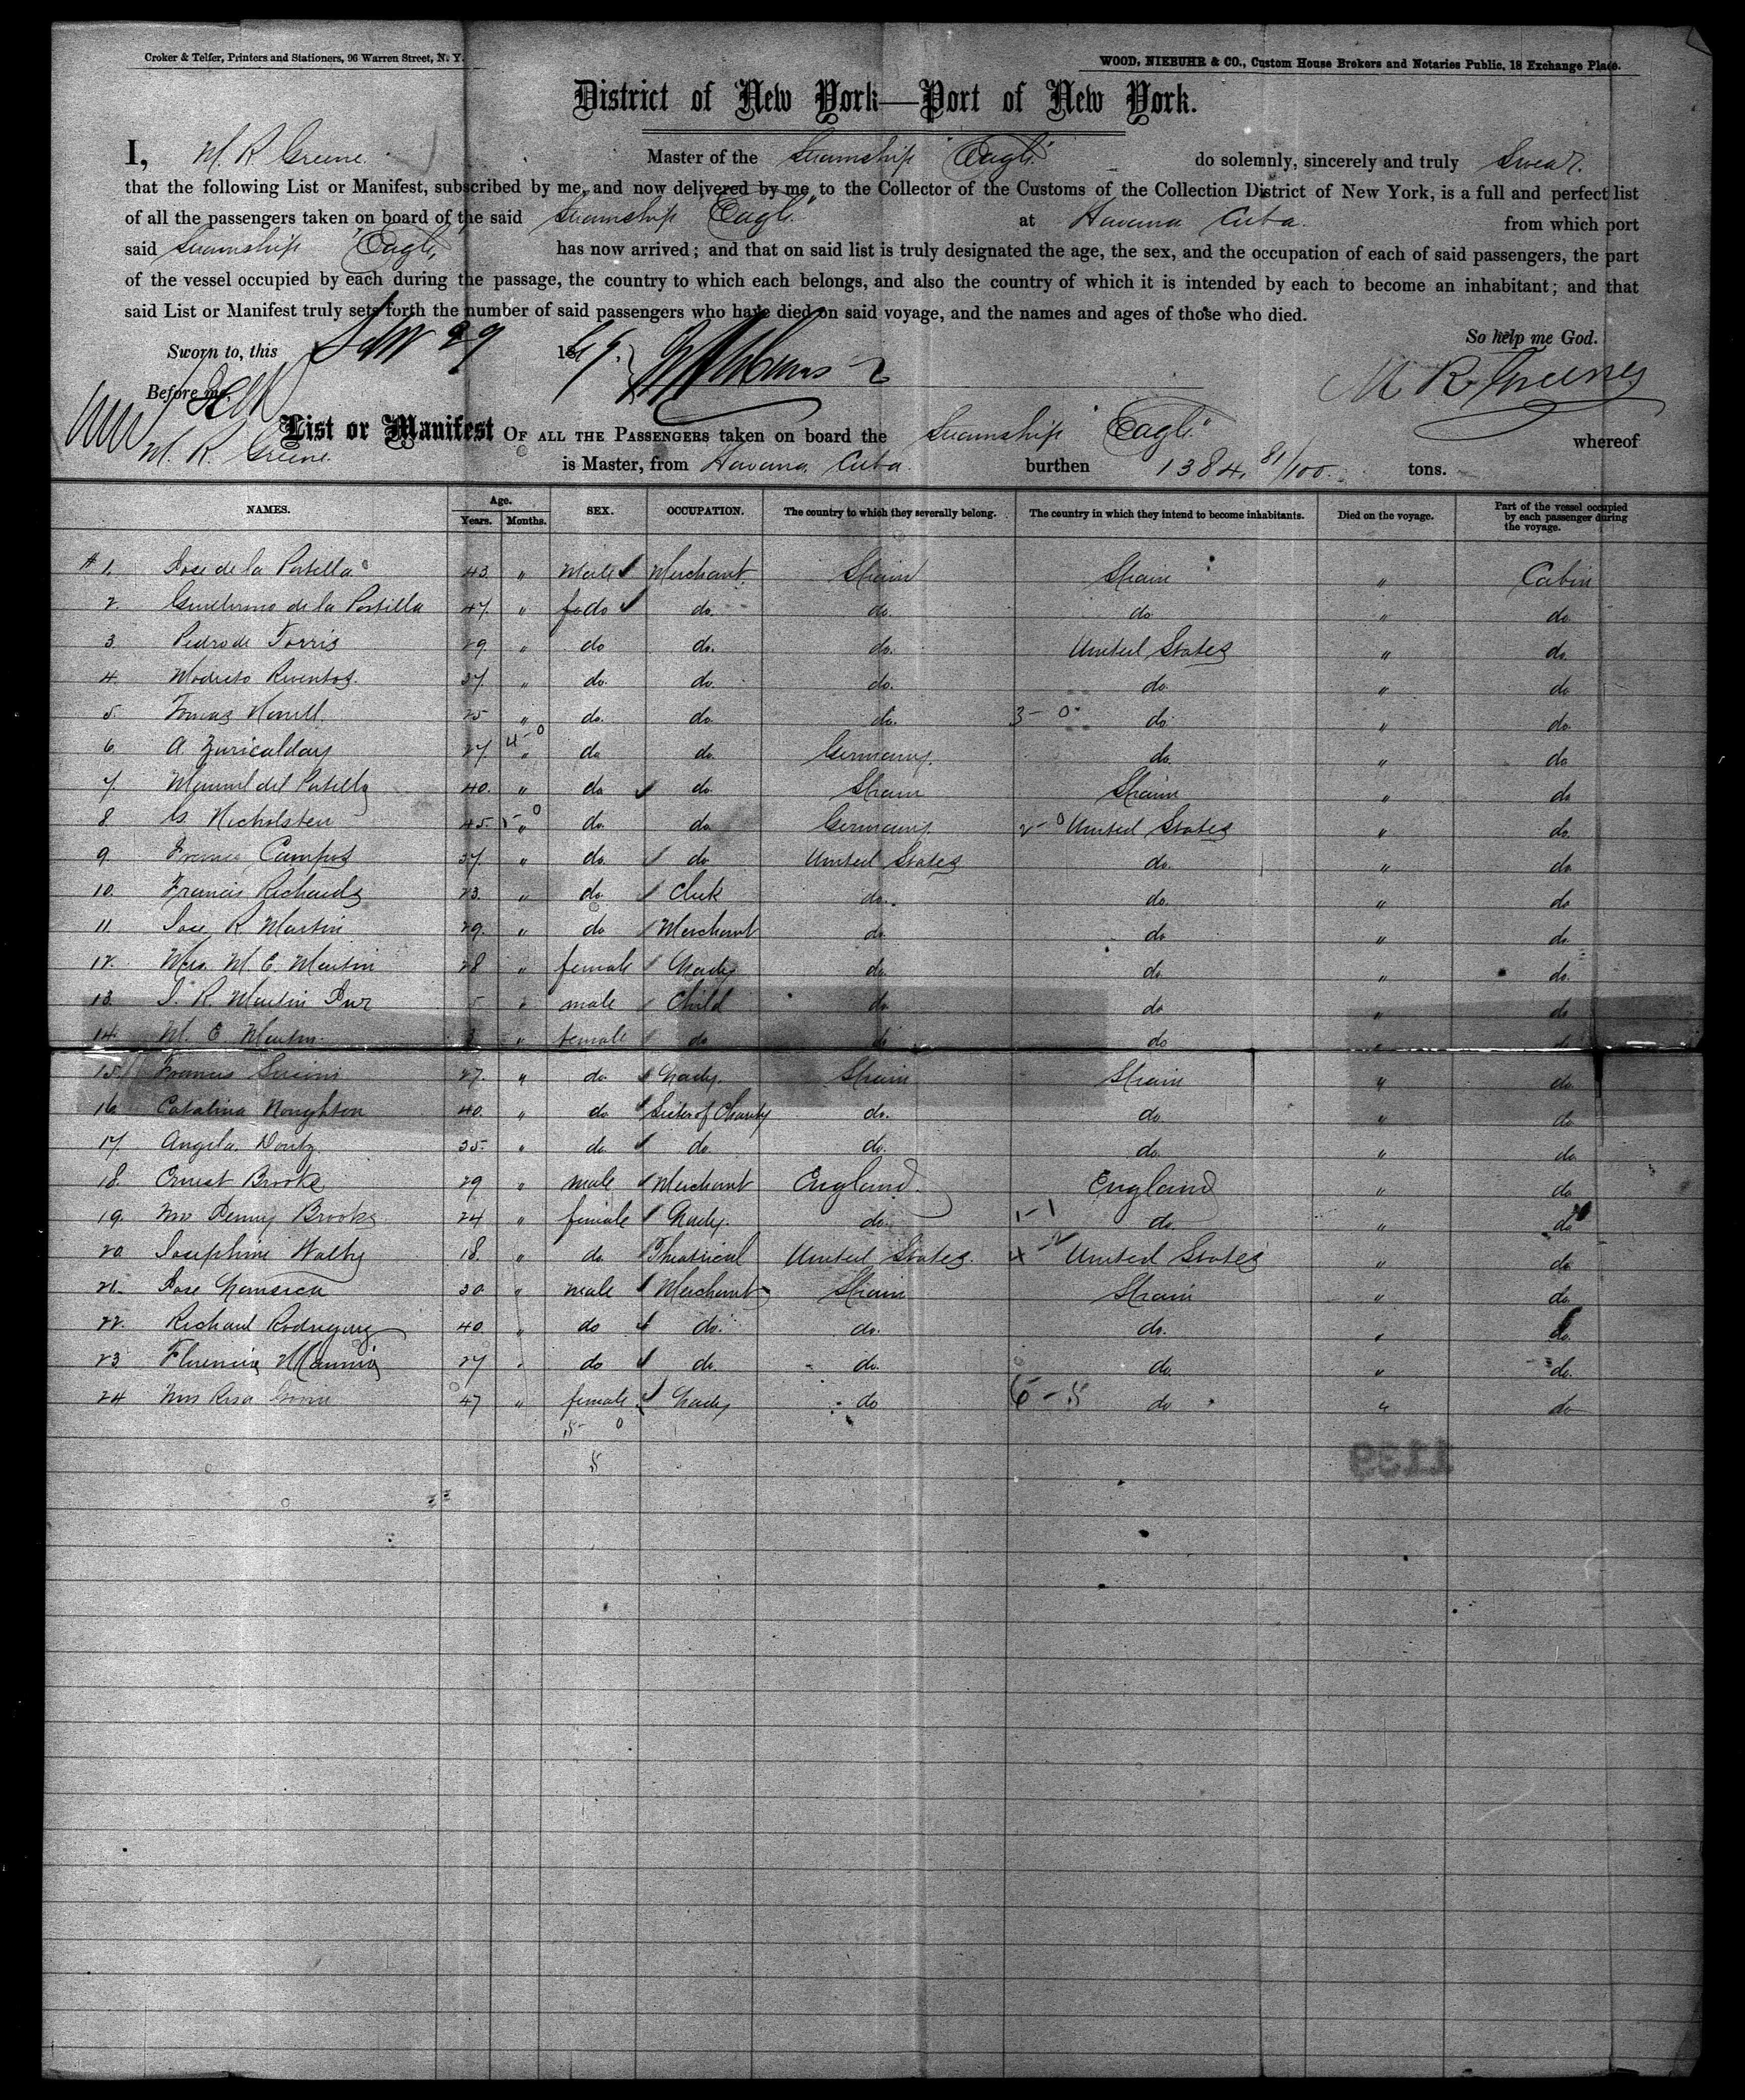 Croker & Telfer, Printers and Stationers, 96 Warren Street, N. Y.
WOOD, NIEBUHR & CO., Custom House Brokers and Notaries Public, 18 Exchange Place.
District of New York—Port of New York.
I, M. R Greene. Master of the Steamship "Eagle" do solemnly, sincerely and truly Swear.
that the following List or Manifest, subscribed by me, and now delivered by me to the Collector of the Customs of the Collection District of New York, is a full and perfect list
of all the passengers taken on board of the said Steamship "Eagle" at Havana Cuba. from which port
said Steamship "Eagle" has now arrived; and that on said list is truly designated the age, the sex, and the occupation of each of said passengers, the part
of the vessel occupied by each during the passage, the country to which each belongs, and also the country of which it is intended by each to become an inhabitant; and that
said List or Manifest truly sets forth the number of said passengers who have died on said voyage, and the names and ages of those who died.
So help me God.
Sworn to, this 29 1869.
Before me, M R Greene
List or Manifest OF ALL THE PASSENGERS taken on board the Steamship "Eagle" whereof
M. R. Greene. is Master, from Havana Cuba burthen 1384. 81/100 tons.
NAMES. Age. Years. Months. SEX. OCCUPATION. The country to which they severally belong. The country in which they intend to become inhabitants. Died on the voyage. Part of the vessel occupied by each passenger during the voyage.
# 1. Jose de la Portilla 43 " Male Merchant Spain Spain " Cabin
2. Guillermo de la Portilla 47 " do do. do. do " do
3 Pedro de Torris 29 " do do. do. United States " do.
4. 37 " do. do do. do. " do
5. 25 " do. do do. 3 - 0 do. " do
6. A. Zuricalday 27 4-0 " do do. Germany. do. " do
7. Manuel del Portilla 40. " do do Spain Spain " do
8. Nicholsten 45. 5-0 " do. do Germany 2-0 United States " do.
9. Campos 37. " do. do United States do. " do
10. Francis Richards 23. " do. Clerk do. do. " do
11. Jose R. Martin 29. " do Merchant do. do " do
12. Mrs. M. E. Martin 28 " female Lady do. do. " do.
13. J. R. Martin Jur 5 " male Child do do " do
14. M. E. Martin. 3 " female do do do " do
15. Francis 27. " do. Lady. Spain Spain " do.
16 Catalina Noughton 40. " do Sister of Charity do. do. " do
17. Angela 35. " do do. do. do. " do.
18. Ernest Brooks 29 " male Merchant England. England " do
19. Mrs Brooks 24 " female Lady. do. 1-1 do. " do
20. Josephine Walby 18. " do Theatrical United States. 4 - 2 United States " do.
21. Jose 30 " male Merchant Spain Spain " do.
22. Richard Rodriguez 40. " do do. do. do. " do.
23 27 " do do. do. do. " do.
24 Mrs Rosa 47 " female Lady do 6 - 5 do " do
5 - 0
5
1139